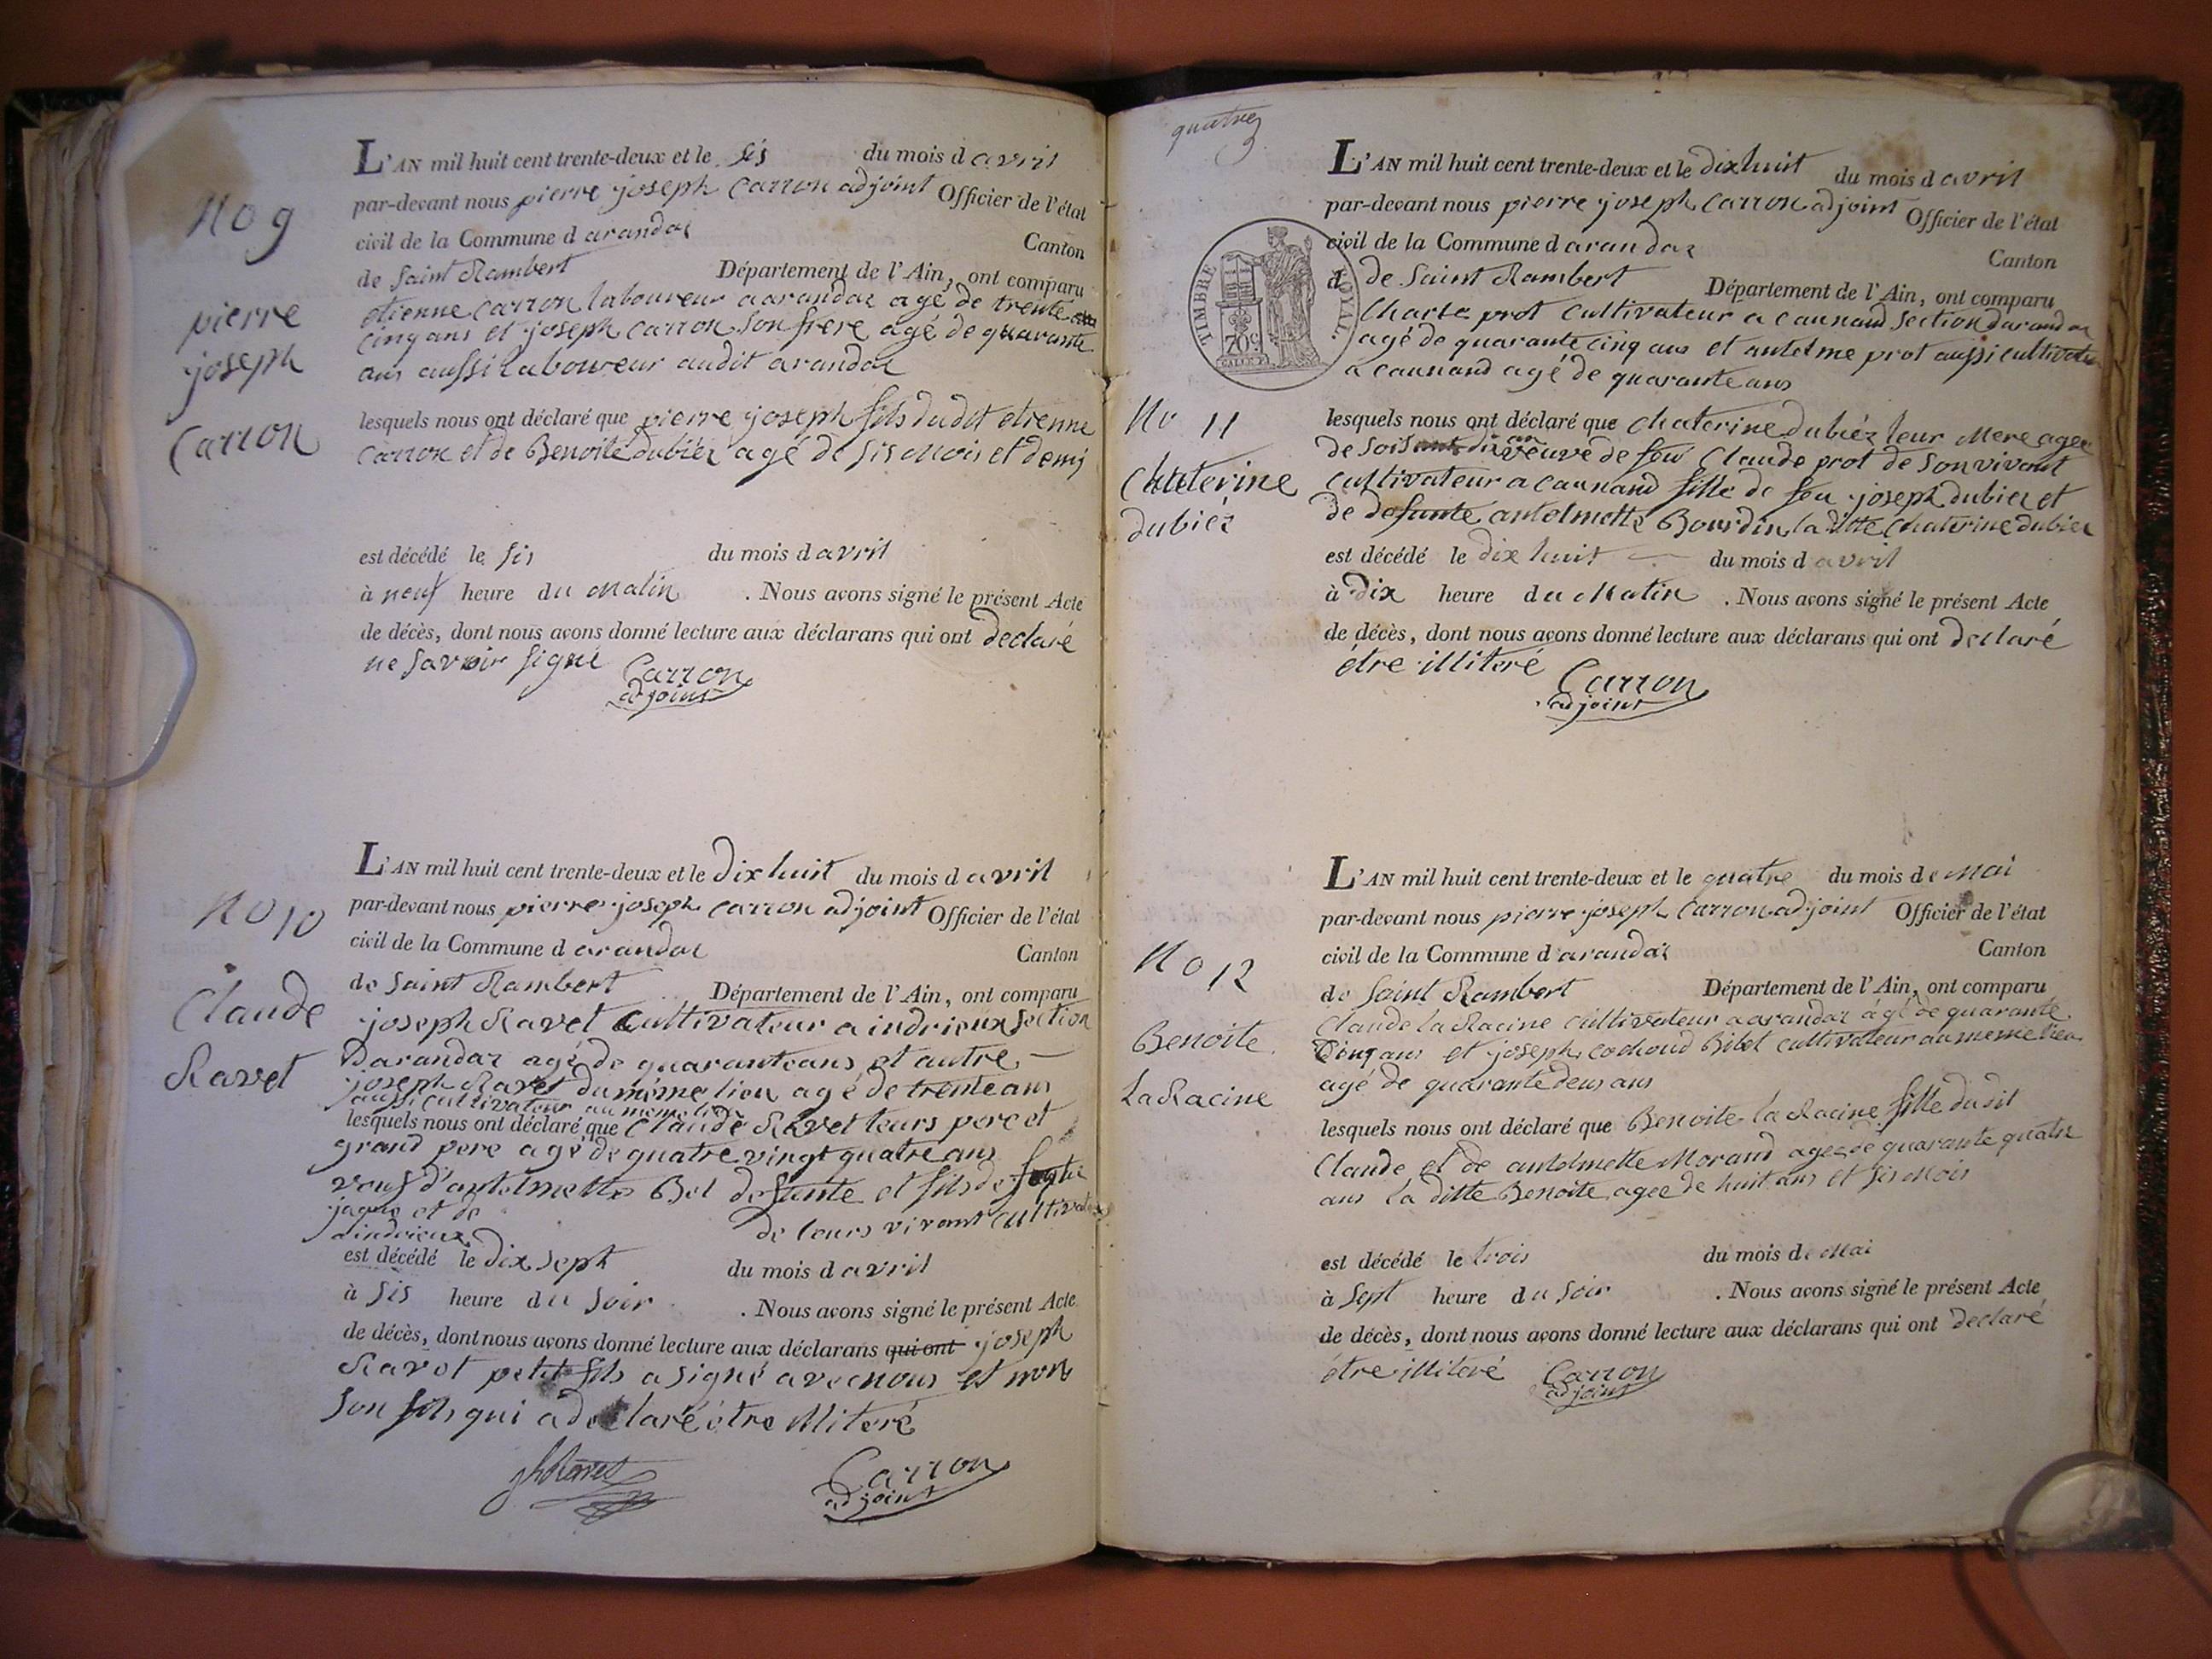 No 9
pierre
joseph
Carron
L'AN mil huit cent trente-deux et le sis du mois d avril
par-devant nous pierre joseph Carron adjoint Officier de l'état
civil de la Commune d arandas Canton
de Saint Rambert Département de l'Ain, ont comparu
etienne Carron laboureur a arandas agé de trente
cinq ans et joseph Carron son frere agé de quarante
ans aussi laboureur audit arandas
lesquels nous ont déclaré que pierre joseph fils dudit etienne
Carron et de Benoite dubiéz agé de sis mois et demi
est décédé le sis du mois d avril
à neuf heure du matin . Nous avons signé le présent Acte
de décès, dont nous avons donné lecture aux déclarans qui ont declaré
ne savoir signé Carron
adjoint
No 10
Claude
Ravet
L'AN mil huit cent trente-deux et le dix huit du mois d avril
par-devant nous pierre joseph Carron adjoint Officier de l'état
civil de la Commune d arandas Canton
de Saint Rambert Département de l'Ain, ont comparu
joseph Ravet Cultivateur a indrieux section
Darandaz agé de quarante ans et autre
joseph Ravet du même lieu agé de trente ans
aussi cultivateur au meme lieu
lesquels nous ont déclaré que Claude Ravet leurs pere et
grand pere agé de quatre vingt quatre ans
veuf d'antelmette Bel defunte et fils de
jaque et de de leurs vivant cultivateurs
a indrieux
est décédé le dix sept du mois d avril
à sis heure du soir . Nous avons signé le présent Acte
de décès, dont nous avons donné lecture aux déclarans qui ont joseph
Ravet petit fils a signé avec nous et non
son fils qui a declaré étre illiteré
Carron
adjoint
quatre
L'AN mil huit cent trente-deux et le dix huit du mois d avril
par-devant nous pierre joseph Carron adjoint Officier de l'état
civil de la Commune d arandaz Canton
d de Saint Rambert Département de l'Ain, ont comparu
prot Cultivateur a caunand section darandas
agé de quarante cinq ans et antelme prot aussi cultivateur
a caunand agé de quarante ans
TIMBRE ROYAL
70c
No 11
Chaterine
dubiéz
lesquels nous ont déclaré que Chaterine dubiéz leur Mere agee
de veuve de feu Claude prot de son vivant
cultivateur a caunand fille de feu joseph dubiez et
de defunte antelmette Bourdin la ditte Chaterine dubiez
est décédé le dix huit du mois d avril
à dix heure du Matin . Nous avons signé le présent Acte
de décès, dont nous avons donné lecture aux déclarans qui ont declaré
étre illiteré Carron
adjoint
No 12
Benoite
LaRacine
L'AN mil huit cent trente-deux et le quatre du mois de Mai
par-devant nous pierre joseph Carron adjoint Officier de l'état
civil de la Commune d arandaz Canton
de Saint Rambert Département de l'Ain, ont comparu
Claude la Racine cultivateur a arandaz agé de quarante
Cinq ans et joseph cochoud Bibet cultivateur au meme lieu
agé de quarante deus ans
lesquels nous ont déclaré que Benoite la Racine fille dudit
Claude et de antelmette Morand agee de quarante quatre
ans la ditte Benoite agee de huit ans et sis Mois
est décédé le trois du mois de Mai
à sept heure du soir . Nous avons signé le présent Acte
de décès, dont nous avons donné lecture aux déclarans qui ont declaré
étre illiteré Carron
adjoint